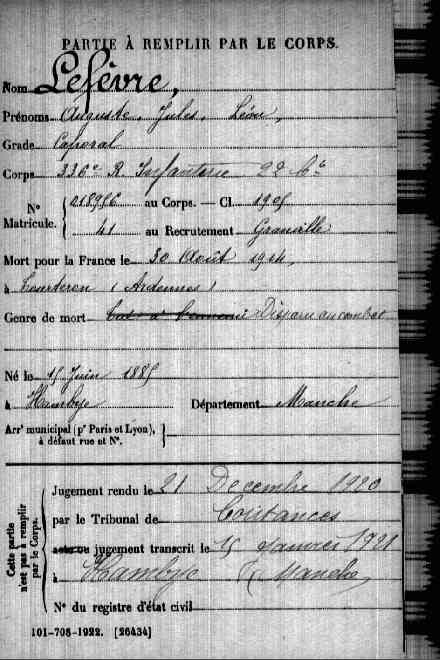 PARTIE À REMPLIR PAR LE CORPS.
Nom Lefèvre,
Prénoms Auguste, Jules, Léon,
Grade Caporal
Corps 336e R. Infanterie 22
N° Matricule. 018956 au Corps. — Cl. 1905
41 au Recrutement Granville
Mort pour la France le 30 Août 1914,
à (Ardennes)
Genre de mort Tué à l'ennemi Disparu au combat
Né le 15 Juin 1885
à Hambye Département Manche
Arrt municipal (pr Paris et Lyon), à défaut rue et N°.
Cette partie n'est pas à remplir par le Corps.
Jugement rendu le 21 Decembre 1920
par le Tribunal de Coutances
ou jugement transcrit le 15 Janvier 1921
à Hambye (Manche)
N° du registre d'état civil
101-708-1922. [26434]